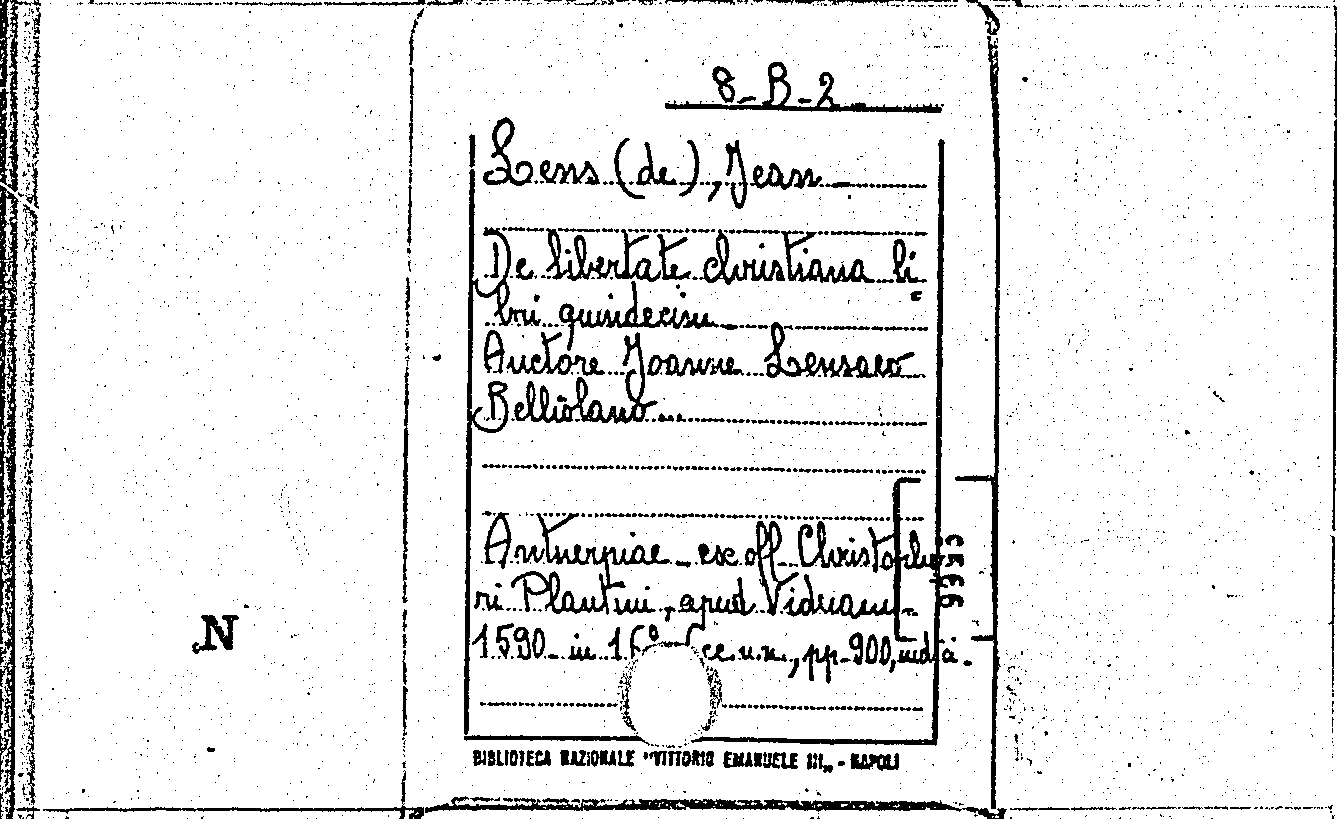 8-B-2
Lens (de), Jean
De libertate christiana li=
bri quindecim
Auctore Joanne Lensaeo
Belliolano...
Antuerpiae - ex off. Christopho
ri Plantini, apud Viduam -
1590 - in 16° cc.n.n., pp. 900,
N
BIBLIOTECA NAZIONALE "VITTORIO EMANUELE III" - NAPOLI